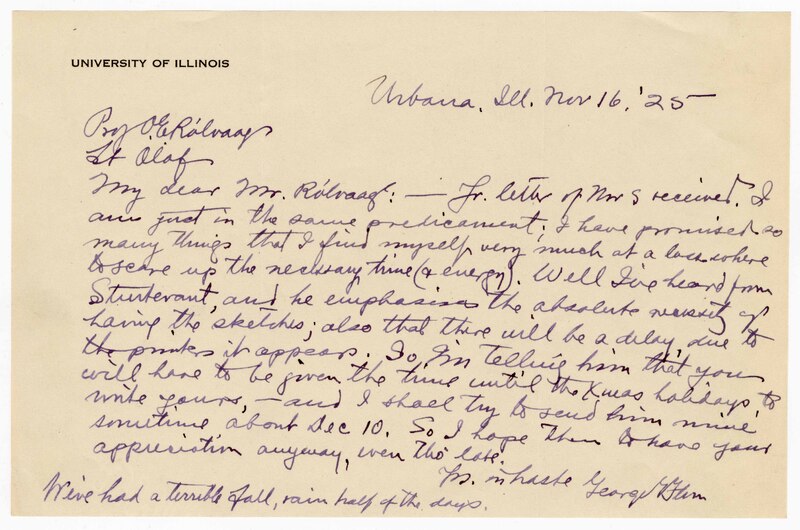 UNIVERSITY OF ILLINOIS
Urbana, Ill. Nov 16, '25
Prof O.E. Rölvaag
St Olaf
My dear Mr. Rölvaag: — Yr. letter of Nov 5 received. I
am just in the same predicament; I have promised so
many things that I find myself very much at a loss where
to scare up the necessary time (& energy). Well I've heard from
Sturtevant, and he emphasises the absolute necessity of
having the sketches; also that there will be a delay due to
the printers it appears. So, I'm telling him that you
will have to be given the time until the Xmas holidays, to
write yours, — and I shall try to send him mine
sometime about Dec 10. So I hope then to have your
appreciation anyway, even tho late.
Yrs. in haste George T. Flom
We've had a terrible fall, rain half of the days.